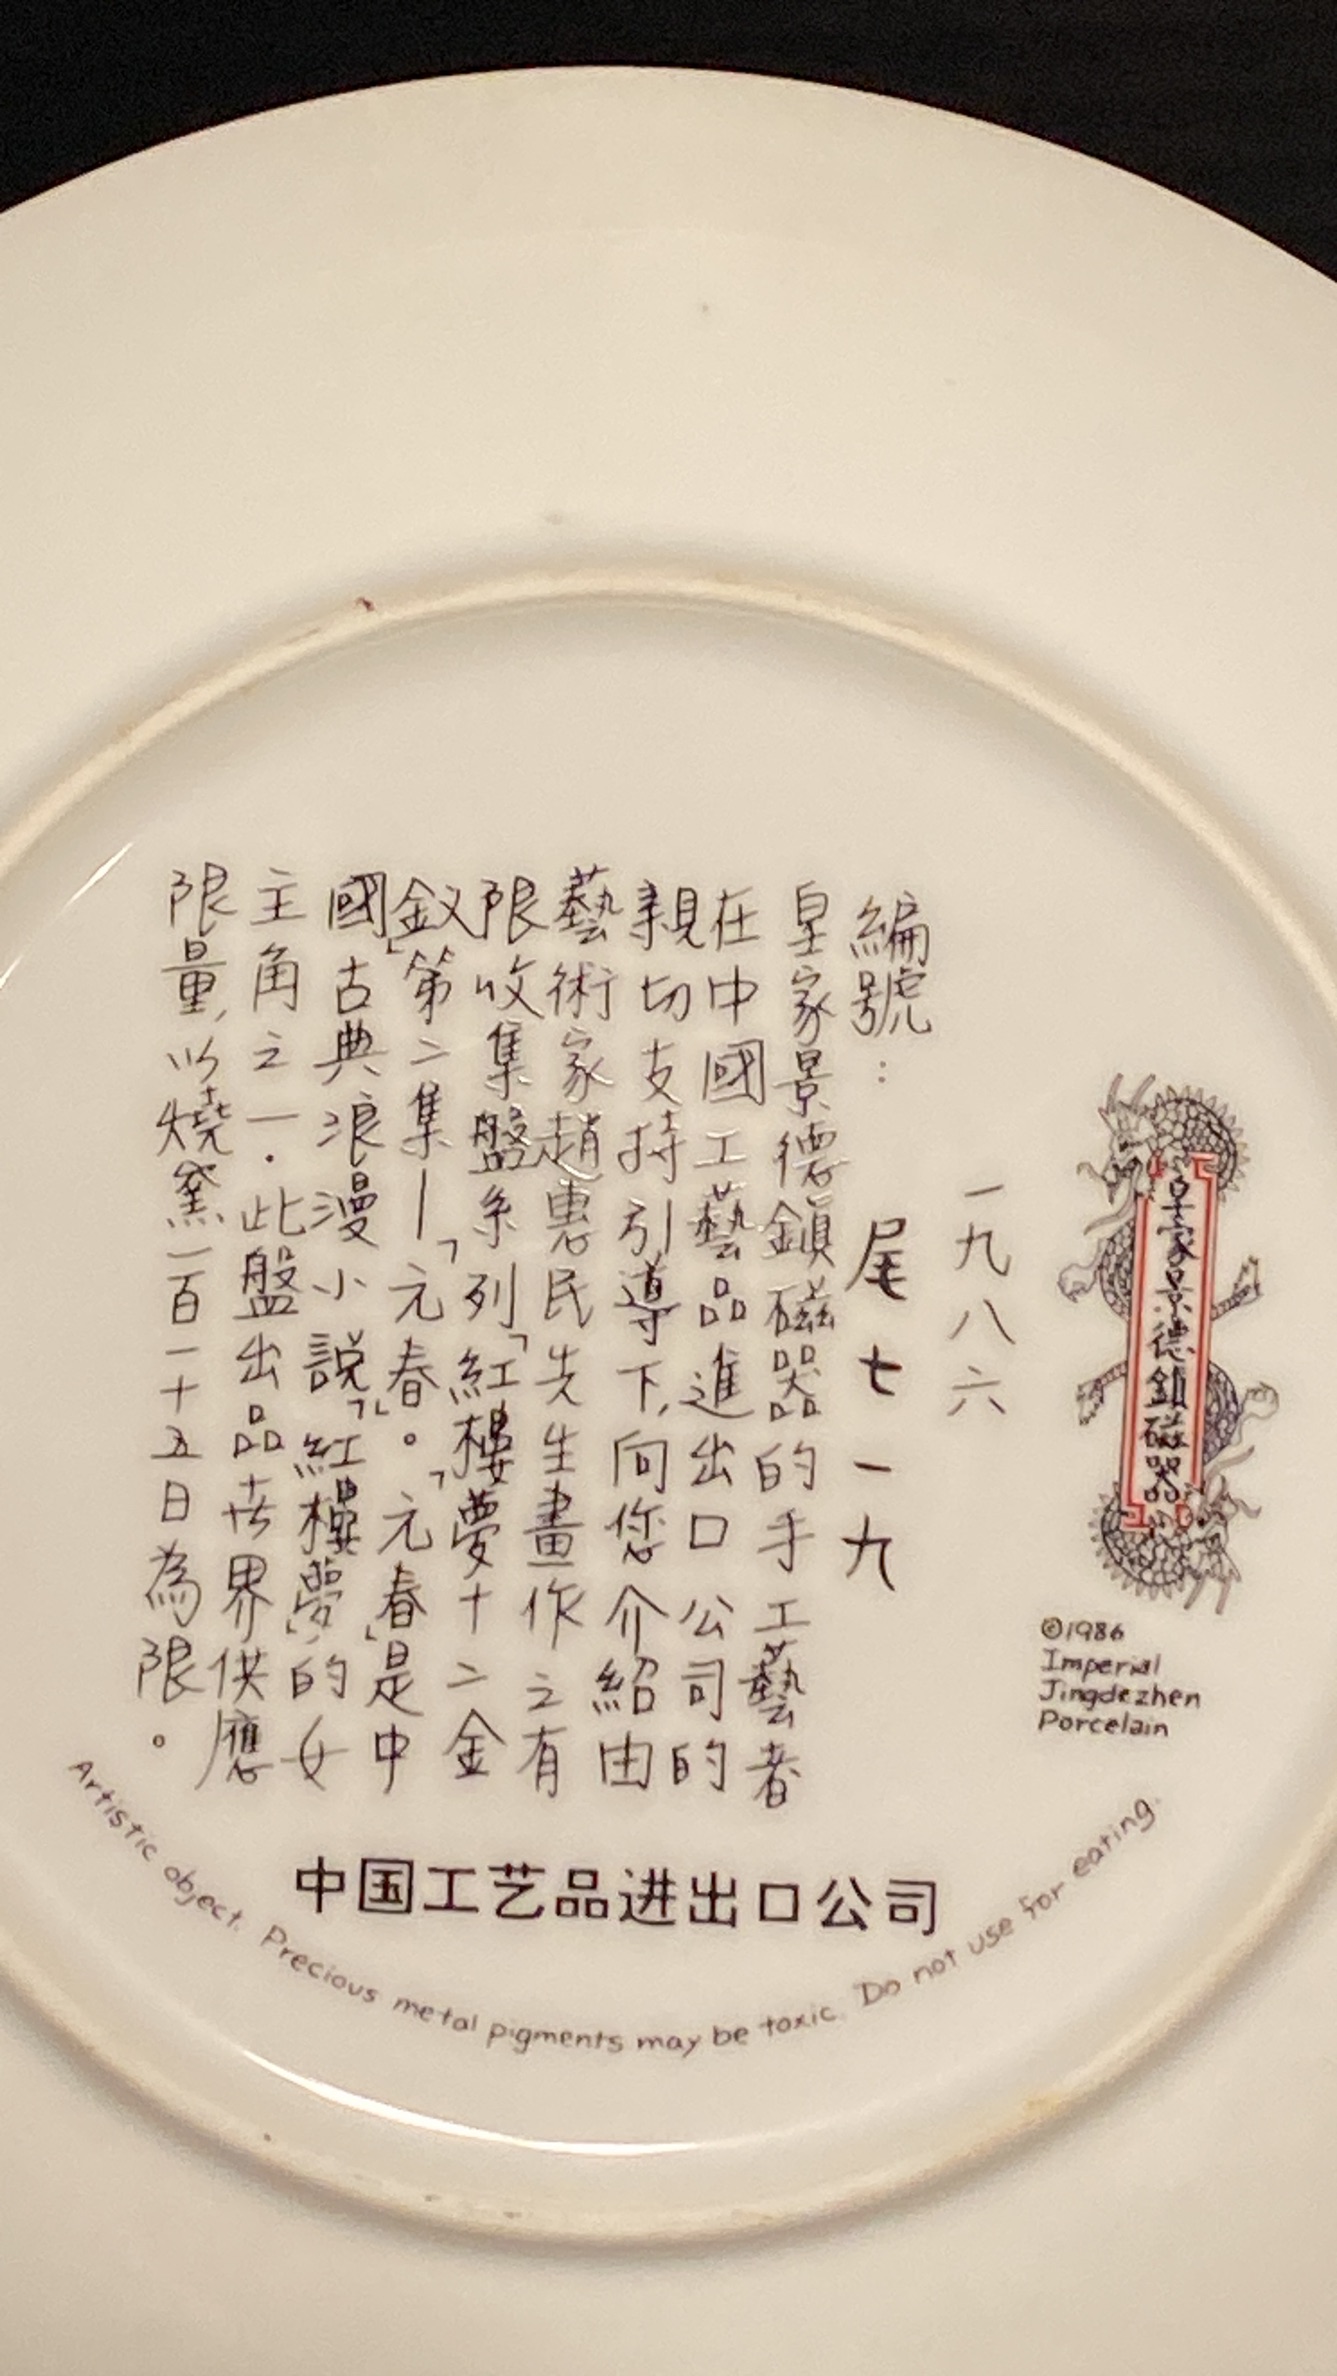 皇家景德鎮磁器
©1986
Imperial
Jingdezhen
Porcelain
一九八六
編號：尾七一九
皇家景德鎮磁器的手工藝者
在中國工藝品進出口公司的
親切支持引導下，向您介紹由
藝術家趙惠民先生畫作之有
限收集盤系列「紅樓夢十二金
釵」第二集—「元春。「元春」是中
國古典浪漫小說「紅樓夢」的女
主角之一．此盤出品卋界供應
限量，以燒窯一百一十五日為限。
中国工艺品进出口公司
Artistic object. Precious metal pigments may be toxic. Do not use for eating.